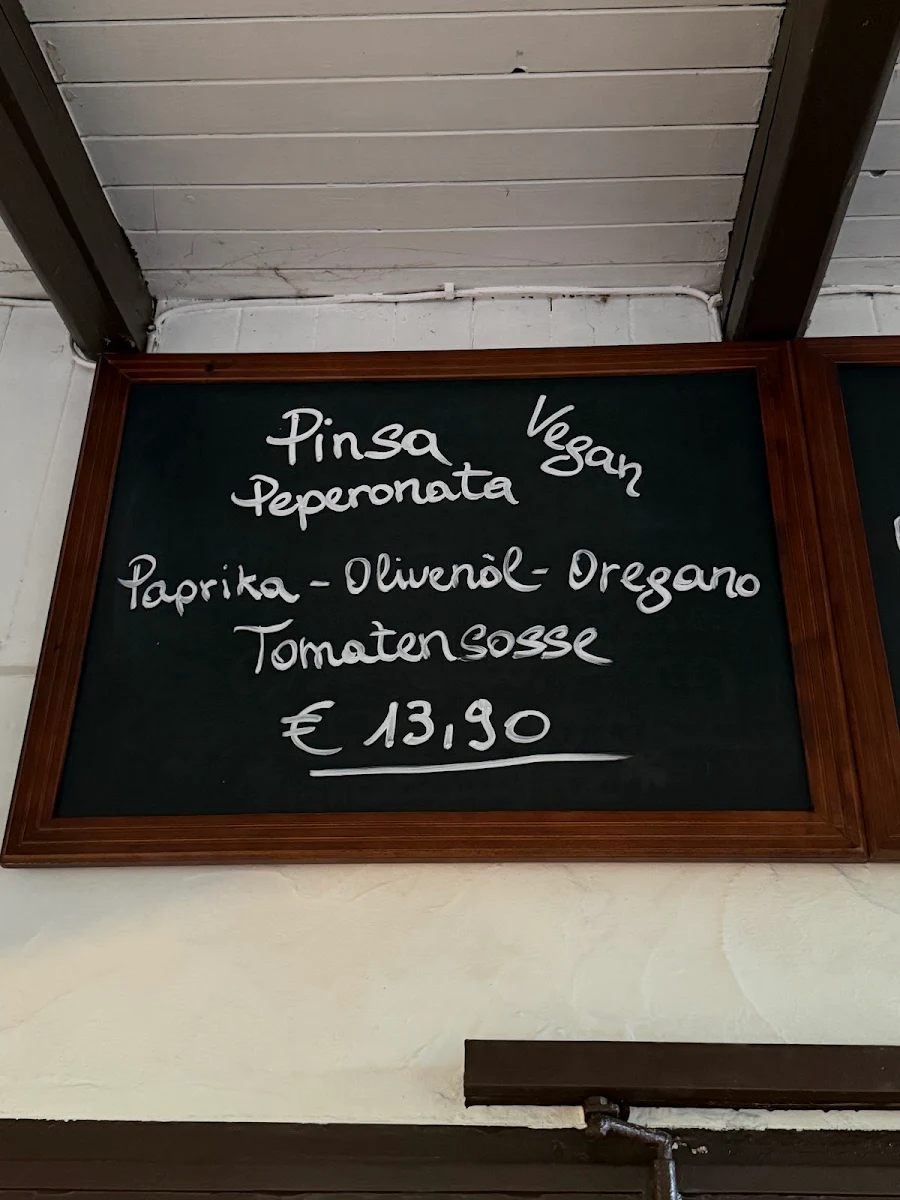 Pinsa Vegan
Peperonata
Paprika - Olivenöl - Oregano
Tomatensosse
€ 13,90